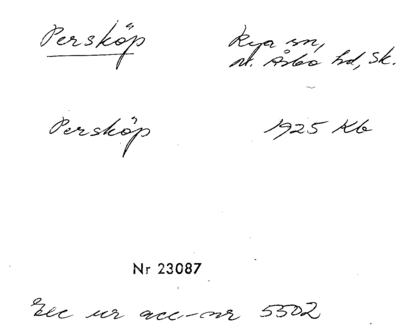 Persköp Rya sn,
N. Åsbo hd, Sk.
Persköp 1925 Kb
Nr 23087
Exc ur acc-nr 5502